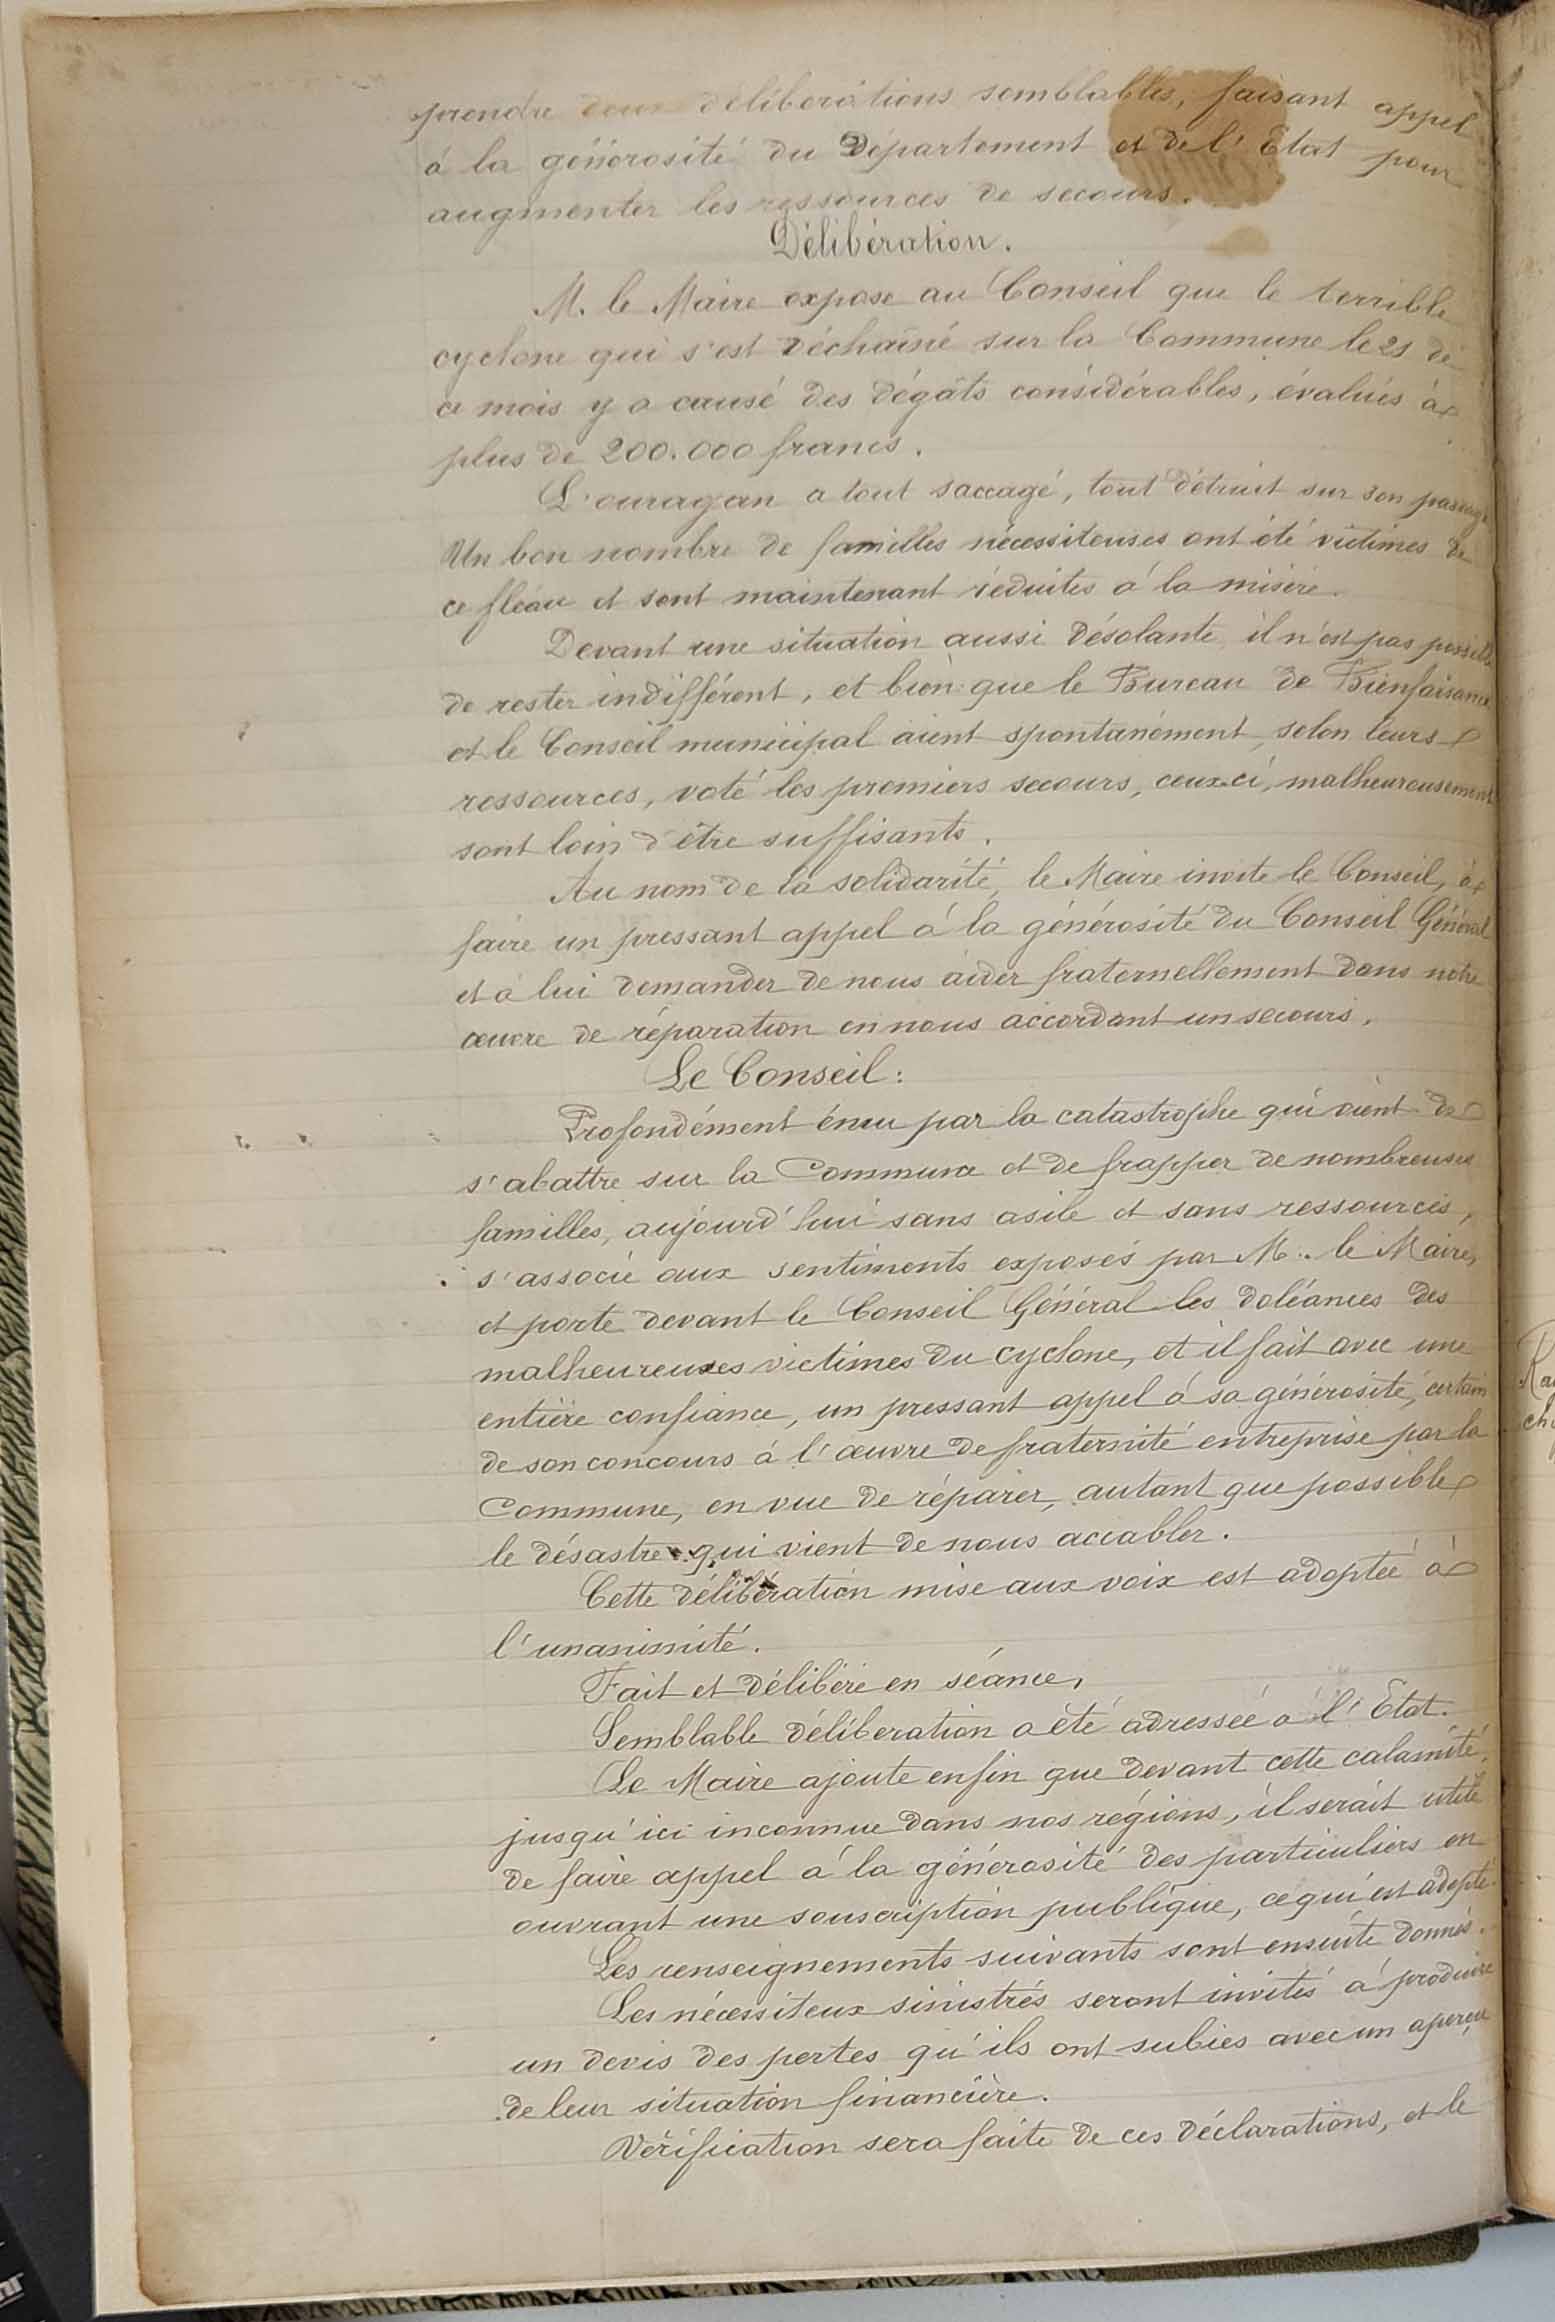 prendre deux délibérations semblables, faisant appel
à la générosité du Département et de l'Etat pour
augmenter les ressources de secours.
Délibération.
M. le Maire expose au Conseil que le terrible
cyclone qui s'est déchaîné sur la Commune le 21 de
ce mois y a causé des dégâts considérables, évalués à
plus de 200.000 francs.
L'ouragan a tout saccagé, tout détruit sur son passage
Un bon nombre de familles nécessiteuses ont été victimes de
ce fléau et sont maintenant réduites à la misère.
Devant une situation aussi désolante, il n'est pas possible
de rester indifférent, et bien que le Bureau de Bienfaisance
et le Conseil municipal aient spontanément, selon leurs
ressources, voté les premiers secours, ceux-ci, malheureusement
sont loin d'être suffisants.
Au nom de la solidarité, le Maire invite le Conseil, à
faire un pressant appel à la générosité du Conseil Général
et à lui demander de nous aider fraternellement dans notre
œuvre de réparation en nous accordant un secours.
Le Conseil:
Profondément ému par la catastrophe qui vient de
s'abattre sur la Commune et de frapper de nombreuses
familles, aujourd'hui sans asile et sans ressources,
s'associe aux sentiments exposés par M. le Maire,
et porte devant le Conseil Général les doléances des
malheureuses victimes du cyclone, et il fait avec une
entière confiance, un pressant appel à sa générosité, certain
de son concours à l'œuvre de fraternité entreprise par la
Commune, en vue de réparer, autant que possible
le désastre qui vient de nous accabler.
Cette délibération mise aux voix est adoptée à
l'unanimité.
Fait et délibéré en séance,
Semblable délibération a été adressée à l'Etat.
Le Maire ajoute enfin que devant cette calamité,
jusqu'ici inconnue dans nos régions, il serait utile
de faire appel à la générosité des particuliers en
ouvrant une souscription publique, ce qui est adopté.
Les renseignements suivants sont ensuite donnés.
Les nécessiteux sinistrés seront invités à produire
un devis des pertes qu'ils ont subies avec un aperçu
de leur situation financière.
Vérification sera faite de ces déclarations, et le